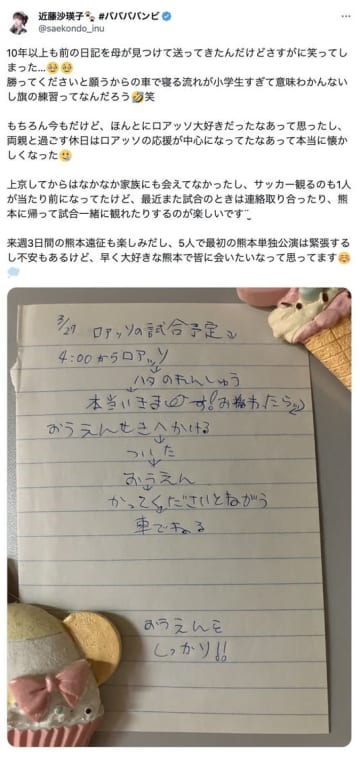 近藤沙瑛子🐾 #ババババンビ
@saekondo_inu
10年以上も前の日記を母が見つけて送ってきたんだけどさすがに笑ってし
まった…🥹🥹
勝ってくださいと願うからの車で寝る流れが小学生すぎて意味わかんない
し旗の練習ってなんだろう🤣笑
もちろん今もだけど、ほんとにロアッソ大好きだったなあって思ったし、
両親と過ごす休日はロアッソの応援が中心になってたなあって本当に懐か
しくなった🥲
上京してからはなかなか家族にも会えてなかったし、サッカー観るのも1人
が当たり前になってたけど、最近また試合のときは連絡取り合ったり、熊
本に帰って試合一緒に観れたりするのが楽しいです¨̮
来週3日間の熊本遠征も楽しみだし、5人で最初の熊本単独公演は緊張する
し不安もあるけど、早く大好きな熊本で皆に会いたいなって思ってます☺️
3/27 ロアッソの試合予定
4:00からロアッソ
↓
ハタのれんしゅう
↓
本当いきます!
おうえんせきへかける
↓
ついた
↓
おうえん
↓
かってくださいとねがう
↓
車でねる
おうえんを
しっかり!!